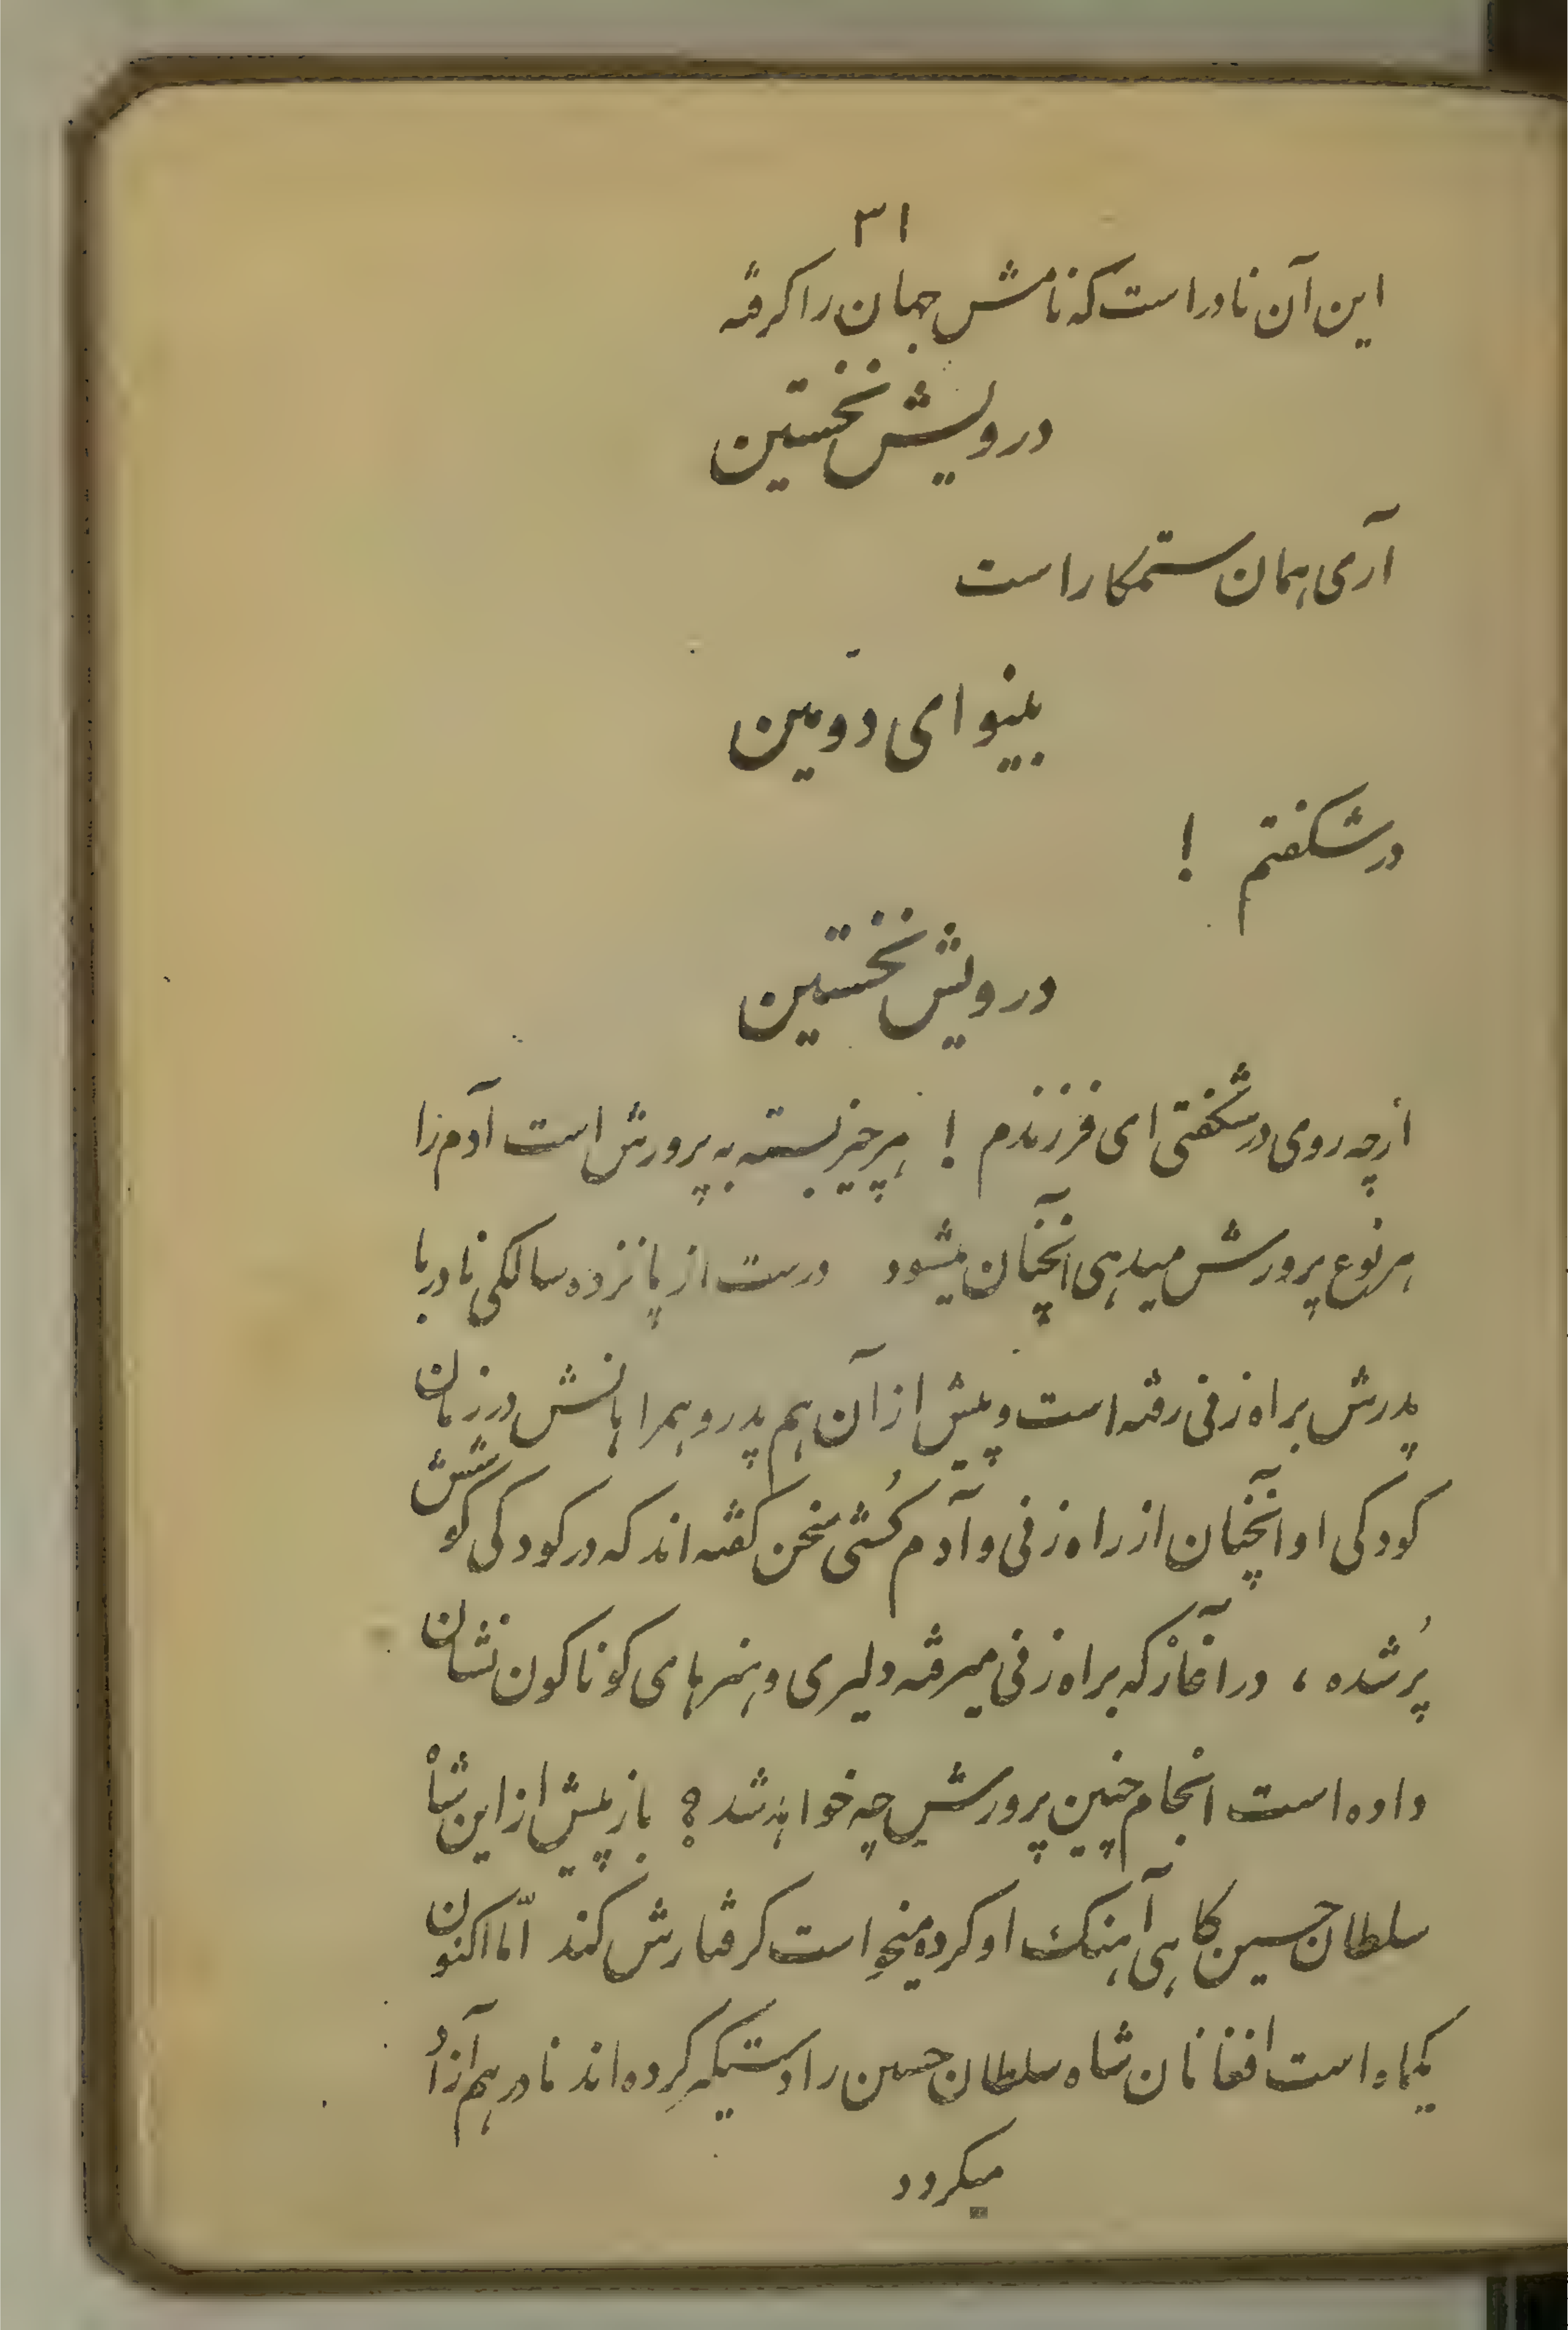 ۳۱
این آن نادر است که نامش جهان را گرفته
درویش نخستین
آری همان ستمکار است
بینوای دوّمین
در شگفتم !
درویش نخستین
از چه روی در شگفتی ای فرزندم ! هر چیز بسته به پرورش است آدم را
هر نوع پرورش میدهی آنچنان میشود درست از پانزده سالگی نادر با
پدرش براه زنی رفته است و پیش از آن هم پدر و همراهانش در زمان
کودکی او آنچنان از راه زنی و آدم کُشی سخن گفته اند که در کودکی گوشش
پُر شده ، در آغاز که براه زنی میرفته دلیری و هنرهای گوناگون نشان
داده است انجام چنین پرورش چه خواهد شد ؟ باز پیش از این شاه
سلطان حسین گاهی آهنگ او کرده میخواست گرفتارش کند امّا اکنون
یکماه است افغانان شاه سلطان حسین را دستگیر کرده اند نادر هم آزاد
میگردد